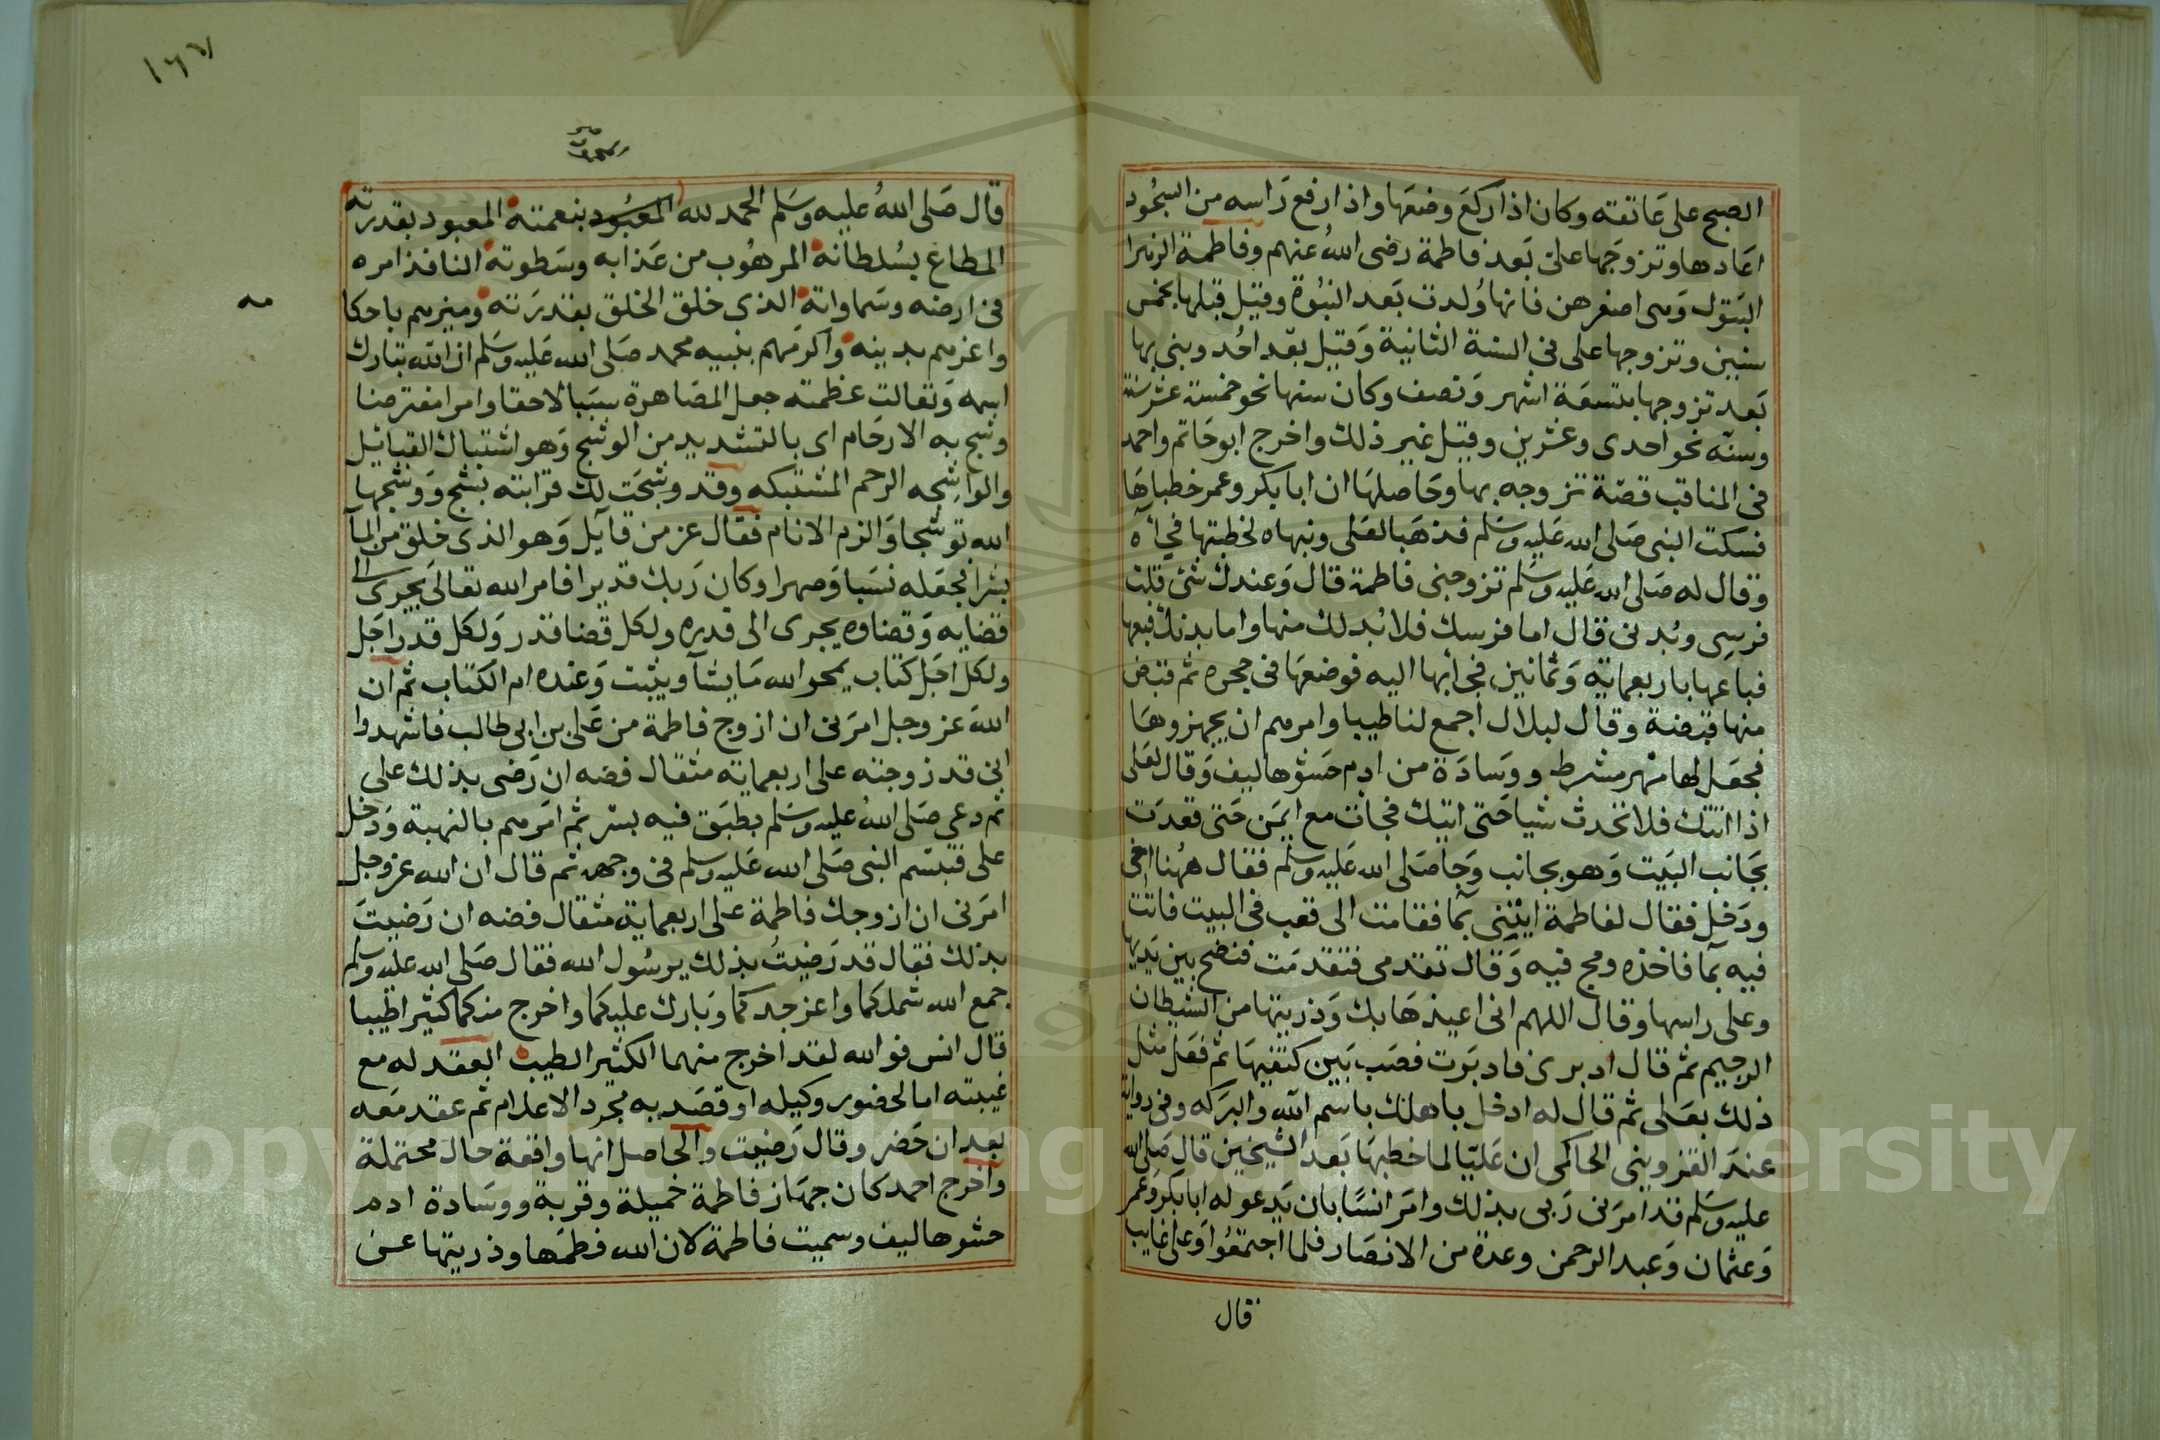 الصبح على عاتقه وكان اذا ركع وضعها واذا رفع راسه من السجود
اعادها وتزوجها على بعد فاطمة رضى الله عنهم وفاطمة الزهرا
البتول وهى اصغرهن فانها ولدت بعد النبوة وقيل قبلها بخمس
سنين وتزوجها على فى السنة الثانية وقيل بعد احد وبنى بها
بعد تزوجها بتسعة اشهر ونصف وكان سنها نحو خمسة عشر سنة
وسنه نحو احدى وعشرين وقيل غير ذلك واخرج ابو حاتم واحمد
فى المناقب قصة تزوجه بها وحاصلها ان ابا بكر وعمر خطباها
فسكت النبى صلى الله عليه وسلم فذهبا لعلى ونبهاه لخطبتها فجأه
وقال له صلى الله عليه وسلم تزوجنى فاطمة قال وعندك شئ قلت
فرسى وبدنى قال اما فرسك فلا بد لك منها واما بدنك فبعها
فباعها باربعماية وثمانين فجأ بها اليه فوضعها فى حجره ثم قبض
منها قبضة وقال لبلال اجمع لنا طيبا وامرهم ان يجهزوها
فجعل لها سرير مشرط ووسادة من ادم حشوها ليف وقال لعلى
اذا اتتك فلا تحدث شيا حتى اتيك فجات مع ايمن حتى قعدت
بجانب البيت وهو بجانب وجا صلى الله عليه وسلم فقال ههنا اخى
ودخل فقال لفاطمة ايتنى بمآ فقامت الى قعب فى البيت فاتت
فيه بمآ فاخذه ومج فيه وقال تقدمى فتقدمت فنضح بين يديها
وعلى راسها وقال اللهم انى اعيذها بك وذريتها من الشيطان
الرجيم ثم قال ادبرى فادبرت فصب بين كتفيها ثم فعل مثل
ذلك بعلى ثم قال له ادخل باهلك باسم الله والبركه وفى رواية
عند القزوينى الحاكمى ان عليا لما خطبها بعد الشيخين قال صلى الله
عليه وسلم قد امرنى ربى بذلك وامر انسا بان يدعو له ابا بكر وعمر
وعثمان وعبد الرحمن وعدة من الانصار فلما اجتمعوا وعلى غايب
قال
١٦٧
قال صلى الله عليه وسلم الحمد لله المعبود بنعمته المعبود بقدرته
المطاع بسلطانه المرهوب من عذابه وسطوته النافذ امره
فى ارضه وسماواته الذى خلق الخلق بقدرته وميزهم باحكا
مه
واعزهم بدينه واكرمهم بنبيه محمد صلى الله عليه وسلم ان الله تبارك
اسمه وتعالت عظمته جعل المصاهرة سببا لاحقا وامرا مفترضا
وشج به الارحام اى بالتشديد من الوشج وهو اشتباك القبائل
والواشجه الرحم المشتبكه وقد وشجت لك قرابته بشج ووشجها
الله توشجا والزم الانام فقال عز من قآيل وهو الذى خلق من المآ
بشرا فجعله نسبا وصهرا وكان ربك قديرا فامر الله تعالى يجرى الى
قضايه وقضاوه يجرى الى قدره ولكل قضا قدر ولكل قدر اجل
ولكل اجل كتاب يمحو الله ما يشآ ويثبت وعنده ام الكتاب ثم ان
الله عز وجل امرنى ان ازوج فاطمة من على بن ابى طالب فاشهدوا
انى قد زوجته على اربعماية مثقال فضه ان رضى بذلك على
ثم دعى صلى الله عليه وسلم بطبق فيه بسر ثم امرهم بالنهبة ودخل
على فتبسم النبى صلى الله عليه وسلم فى وجهه ثم قال ان الله عز وجل
امرنى ان ازوجك فاطمة على اربعماية مثقال فضه ان رضيت
بذلك فقال قد رضيت بذلك يرسول الله فقال صلى الله عليه وسلم
جمع الله شملكما واعز جدكما وبارك عليكما واخرج منكما كثيرا طيبا
قال انس فوالله لقد اخرج منهما الكثير الطيب العقد له مع
غيبته اما لحضور وكيله او قصد به مجرد الاعلام ثم عقد معه
بعد ان حضر وقال رضيت والحاصل انها واقعة حال محتملة
واخرج احمد كان جهاز فاطمة خميلة وقربة ووسادة ادم
حشوها ليف وسميت فاطمة لان الله فطمها وذريتها عن
Copyright © King Saud University